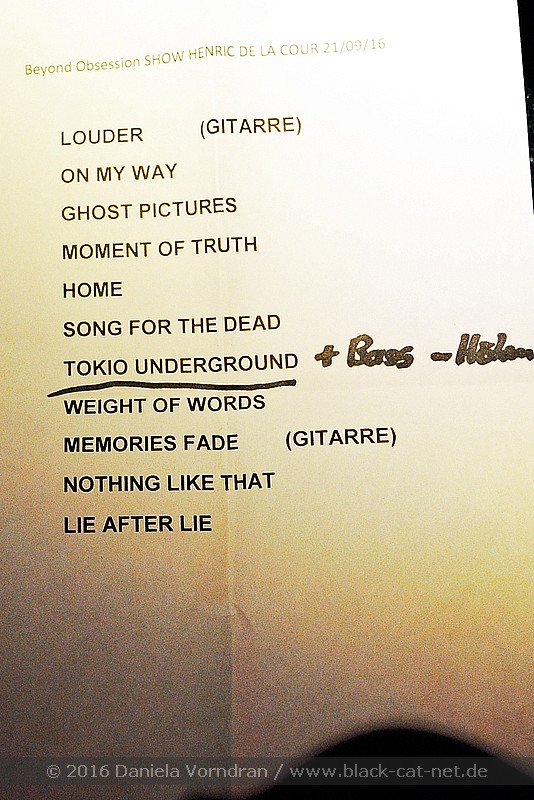 Beyond Obsession SHOW HENRIC DE LA COUR 21/09/16
LOUDER (GITARRE)
ON MY WAY
GHOST PICTURES
MOMENT OF TRUTH
HOME
SONG FOR THE DEAD
TOKIO UNDERGROUND + Bass -
WEIGHT OF WORDS
MEMORIES FADE (GITARRE)
NOTHING LIKE THAT
LIE AFTER LIE
© 2016 Daniela Vorndran / www.black-cat-net.de